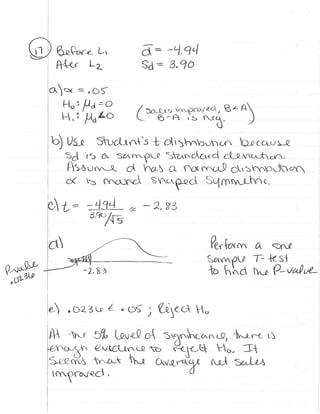 17) Before L₁ d̄ = -4.94
After L₂ Sd = 3.90
a) α = .05
H₀: μd = 0
H₁: μd < 0
(Sales improved, B < A)
B - A is neg.
b) Use Student's t distribution because
Sd is a sample standard deviation.
Assume d has a normal distribution
or is mound shaped symmetric.
c) t = -4.94 / (3.90/√5) ≈ -2.83
d)
P-value
.0236
-2.83
Perform a one
sample T-test
to find the P-value
e) .0236 ≤ .05 ; Reject H₀
At the 5% level of significance, there is
enough evidence to reject H₀. It
seems that the average net sales
improved.